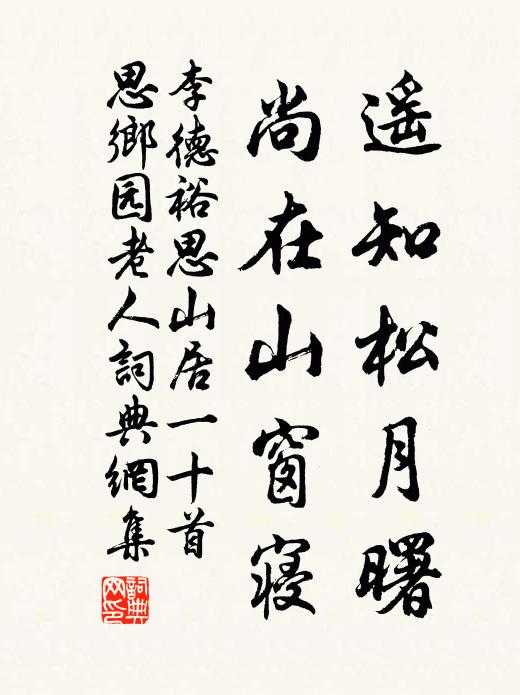 遥知松月曙
尚在山窗寝
李德裕思山居一十首
思鄉园老人詞典網集
詞典網印